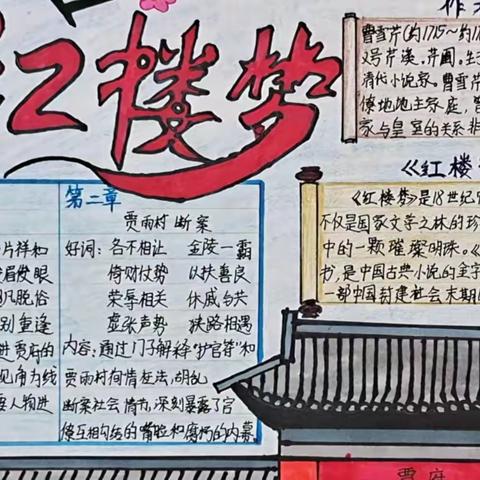 红楼梦
曹雪芹(约1715～约17
又号芹溪、芹圃。生
清代小说家。曹雪芹
僚地地主家庭,
家与皇室的关系非
《红楼
《红楼梦》是18世纪
不仅是国家文学之林的珍
中的一颗璀璨明珠。《
书,是中国古典小说的金字
一部中国封建社会末期
第二章
贾雨村断案
好词: 各不相让 金陵一霸
倚财仗势 以扶善良
荣辱相关 休戚与共
虚张声势 狭路相遇
内容:通过门子解释"护官符"和
贾雨村徇情枉法,胡乱
断案社会情节,深刻暴露了官
僚互相勾结的嘴脸和腐朽的内幕。
片祥和
眉俊眼
凡脱俗
别重逢
进贾府的
视角为线
人物进
贾府